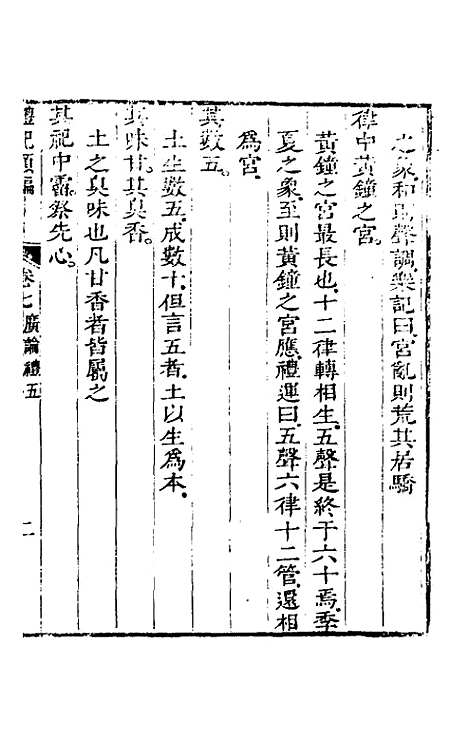 之象和則聲調樂記曰宮亂則荒其君驕
律中黃鐘之宮。
黃鐘之宮最長也十二律轉相生五聲具終于六十焉季
夏之氣至則黃鐘之宮應禮運曰五聲六律十二管還相
爲宮
其數五。
土生數五成數十但言五者土以生爲本
其味甘其臭香。
土之臭味也凡甘香者皆屬之
其祀中霤祭先心。
禮記類編 卷七 廣論禮五 二